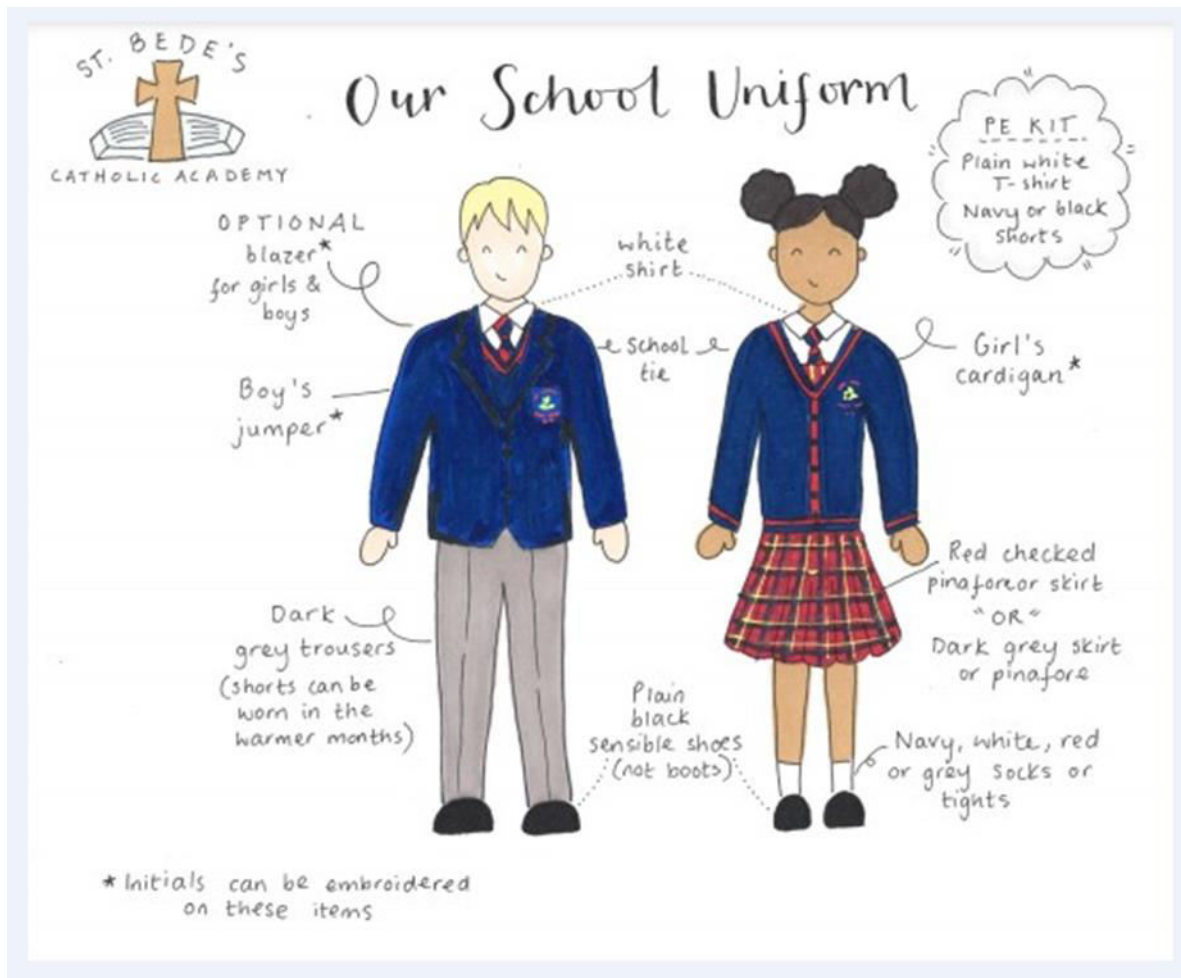 ST. BEDE'S
CATHOLIC ACADEMY
Our School Uniform
PE KIT
Plain white
T-shirt
Navy or black
shorts
OPTIONAL
blazer*
for girls &
boys
white
shirt
School
tie
Girl's
cardigan*
Boy's
jumper*
Red checked
pinafore or skirt
"OR"
Dark grey skirt
or pinafore
Dark
grey trousers
(shorts can be
worn in the
warmer months)
Plain
black
sensible shoes
(not boots)
Navy, white, red
or grey socks or
tights
* Initials can be embroidered
on these items